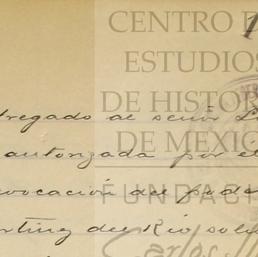 CENTRO DE
ESTUDIOS
DE HISTOR
DE MEXIC
FUNDACI
tregado al señor L
autorizada por él
vocación del pode
rting del Rio soli
Carlos